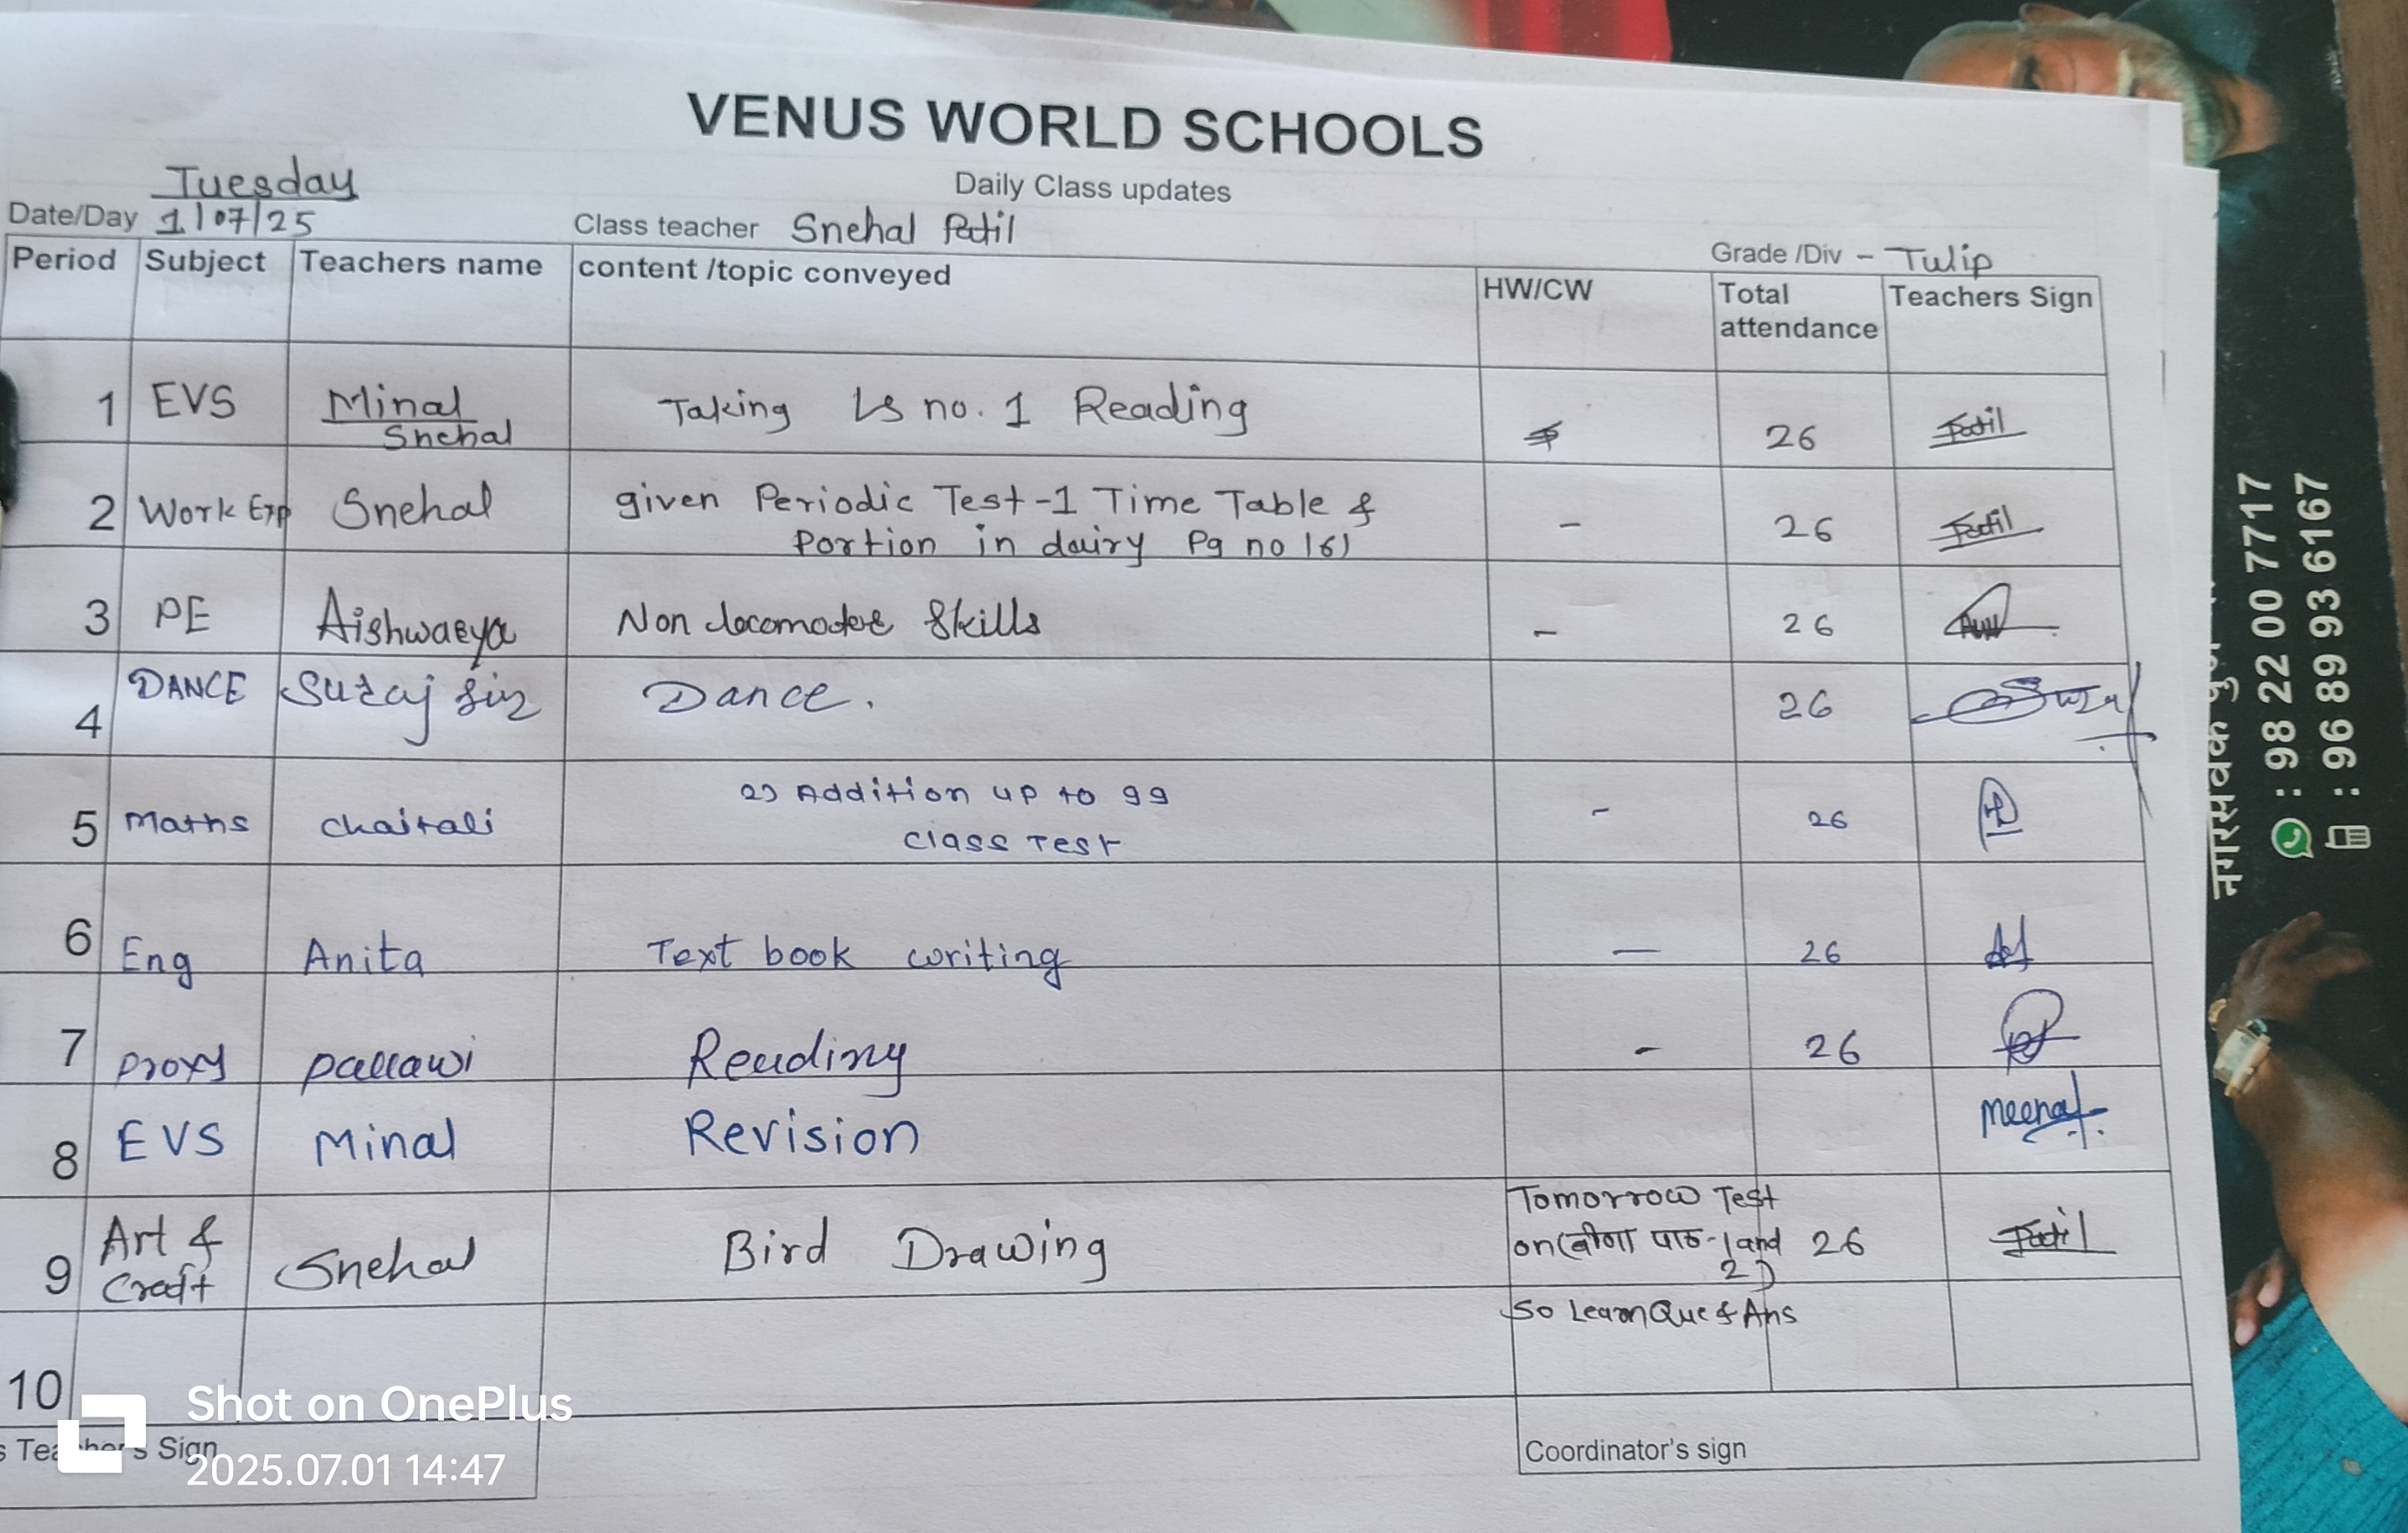 VENUS WORLD SCHOOLS
Daily Class updates
Tuesday
Date/Day 1/07/25
Class teacher Snehal Patil
Grade /Div - Tulip
Period Subject Teachers name content /topic conveyed HW/CW Total attendance Teachers Sign
1 EVS Minal Snehal Taking Ls no. 1 Reading 26 Patil
2 Work Exp Snehal given Periodic Test-1 Time Table &
Portion in dairy Pg no 161 - 26 Patil
3 PE Aishwarya Non locomotor Skills - 26
4 DANCE Suraj Sir Dance. 26
5 Maths Chaitali 2) Addition up to 99
Class Test - 26
6 Eng Anita Text book writing — 26
7 Proxy Pallawi Reading - 26
8 EVS Minal Revision Meenal
9 Art & Craft Snehal Bird Drawing 26 Patil
Tomorrow Test
on (वीणा पाठ-1 and
2)
So Learn Que & Ans
10
Teacher's Sign
Coordinator's sign
Shot on OnePlus
2025.07.01 14:47
नगरसेवक
: 98 22 00 7717
: 96 89 93 6167